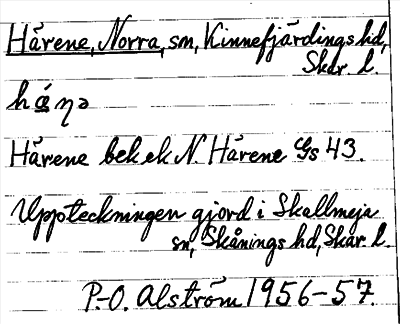 Härene, Norra, sn, Kinnefjärdings hd,
Skar. l.
Härene bek ek N. Härene Gs 43.
Uppteckningen gjord i Skallmeja
sn, Skånings hd, Skar. l.
P.-O. Alström 1956-57.